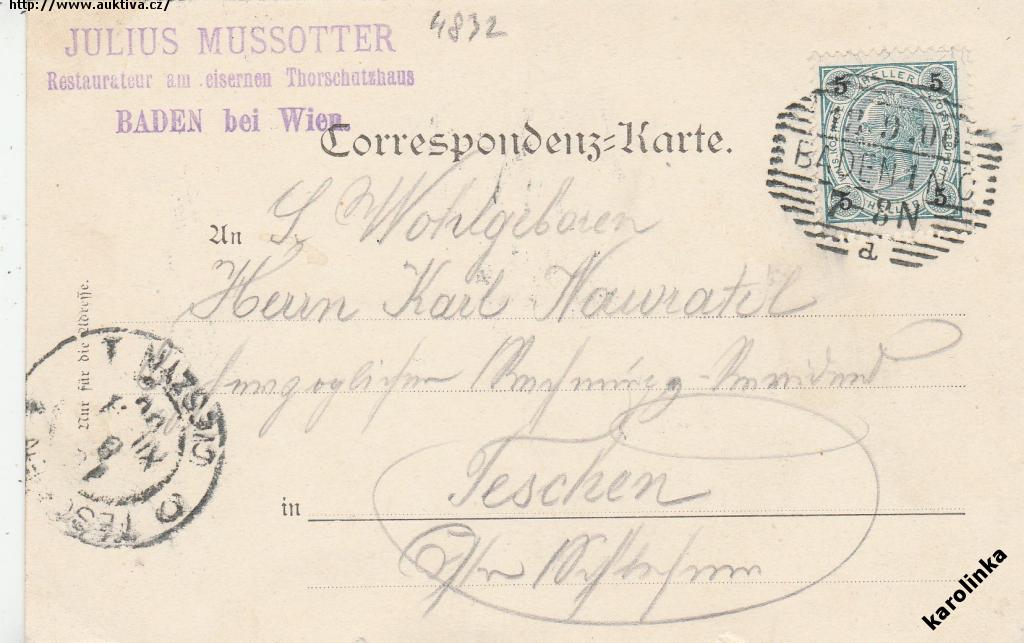 http://www.auktiva.cz/
4832
JULIUS MUSSOTTER
Restaurateur am eisernen Thorschutzhaus
BADEN bei Wien.
Correspondenz-Karte.
5 HELLER 5
BADEN 1 N.Ö.
5 HELLER 5
8 N
a
An S. Wohlgeboren
Herrn Karl Nawratil
herzoglicher Rechnungs-Revident
Nur für die Adresse.
CIESZYN
TESCHEN
in Teschen
Schlesien
karolinka